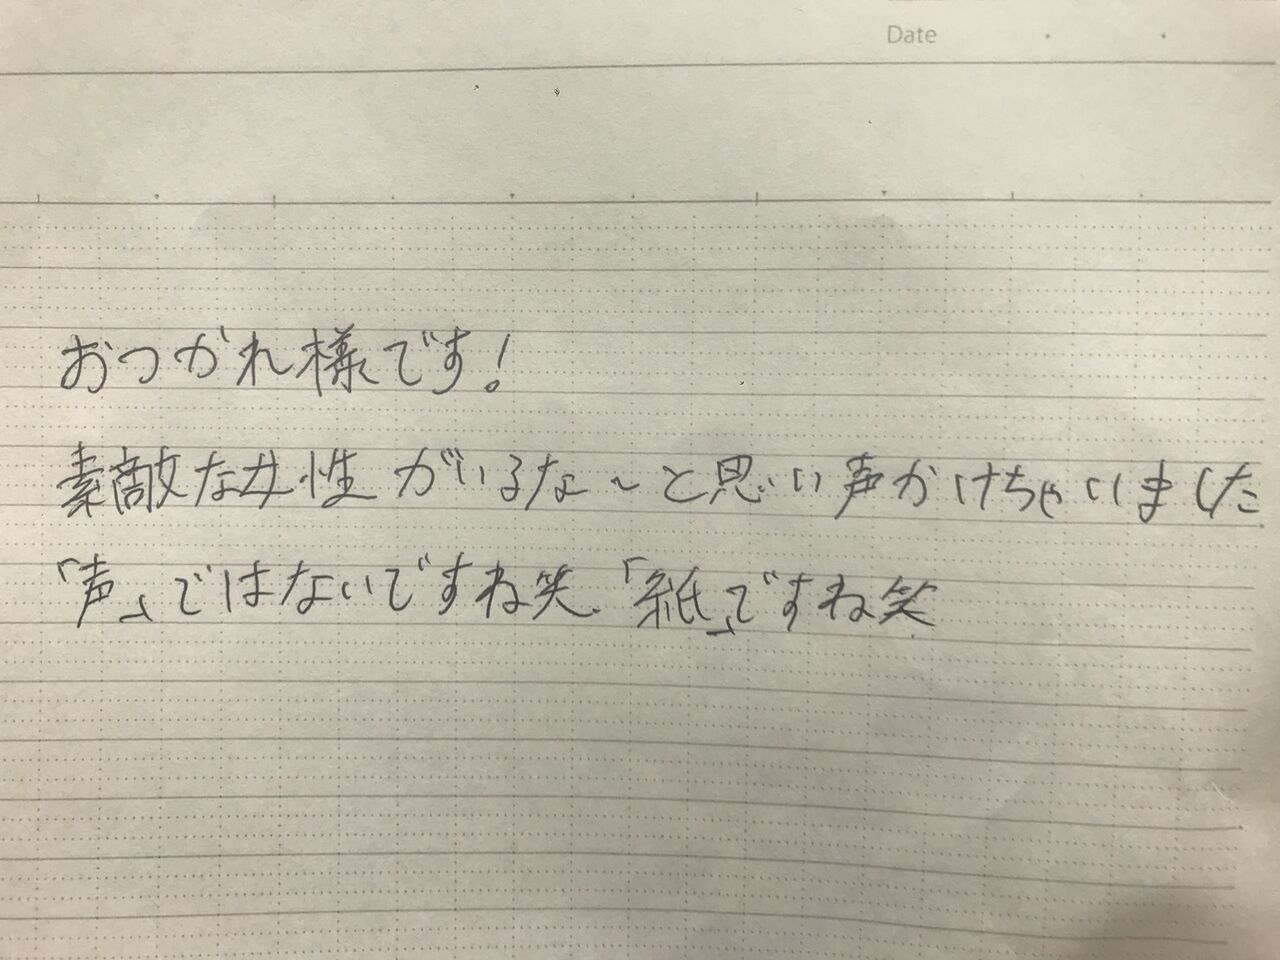 Date
おつかれ様です!
素敵な女性がいるな～と思い声かけちゃいました
「声」ではないですね笑、「紙」ですね笑